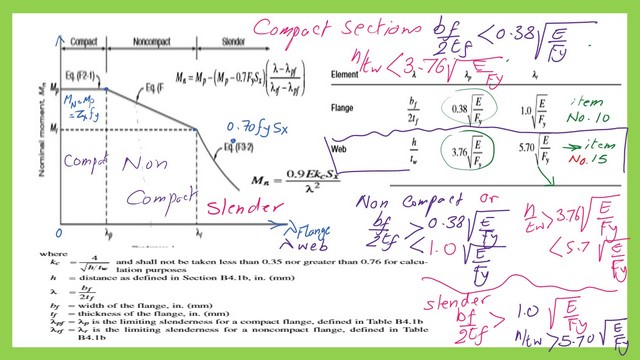 Compact Sections bf/2tf < 0.38 √E/Fy
h/tw < 3.76 √E/Fy
Compact Noncompact Slender
Mp
Eq.(F2-1)
Eq.(F
Mn = Mp – (Mp – 0.7FySx) (λ – λpf / λrf – λpf)
MN=Mp
=Zxfy
Mr
0.70fySx
Eq.(F3-2)
Nominal moment, Mn
Compact
Non
Compact
Slender
Mn = 0.9EkcSx / λ²
0
λp
λr
λ Flange
λ web
Element λ λp λr
Flange bf/2tf 0.38 √E/Fy 1.0 √E/Fy item No. 10
Web h/tw 3.76 √E/Fy 5.70 √E/Fy → item No. 15
Non Compact or
bf/2tf > 0.38 √E/Fy
< 1.0 √E/Fy
h/tw > 3.76 √E/Fy
< 5.7 √E/Fy
slender
bf/2tf > 1.0 √E/Fy
h/tw > 5.70 √E/Fy
where
kc = 4/√h/tw and shall not be taken less than 0.35 nor greater than 0.76 for calcu-
lation purposes
h = distance as defined in Section B4.1b, in. (mm)
λ = bf/2tf
bf = width of the flange, in. (mm)
tf = thickness of the flange, in. (mm)
λpf = λp is the limiting slenderness for a compact flange, defined in Table B4.1b
λrf = λr is the limiting slenderness for a noncompact flange, defined in Table
B4.1b